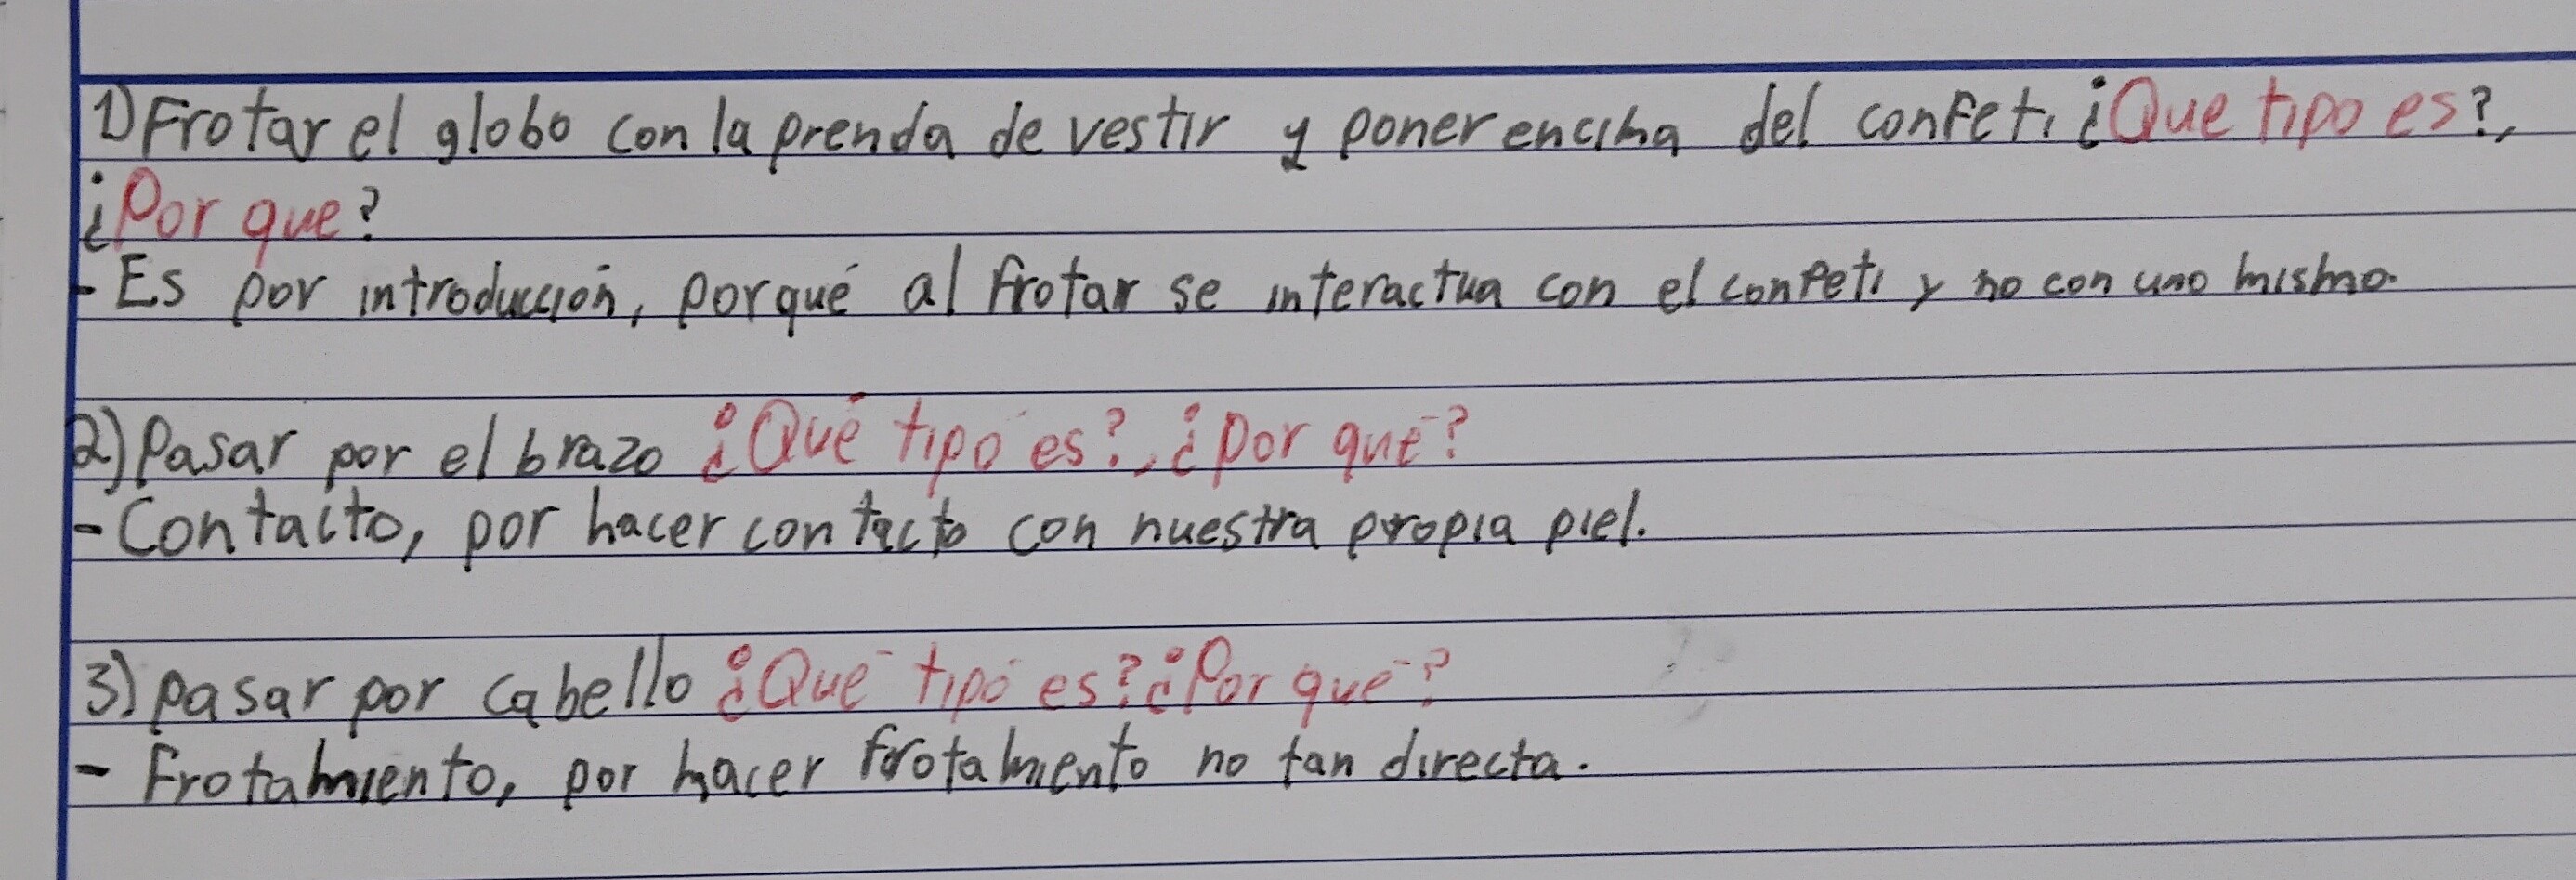 1) Frotar el globo con la prenda de vestir y poner encima del confeti ¿Que tipo es?,
¿Por que?
- Es por introducción, porqué al frotar se interactua con el confeti y no con uno mismo.
2) Pasar por el brazo ¿Qué tipo es?, ¿por qué?
- Contacto, por hacer contacto con nuestra propia piel.
3) pasar por cabello ¿Qué tipo es? ¿Por qué?
- Frotamiento, por hacer frotamiento no tan directa.